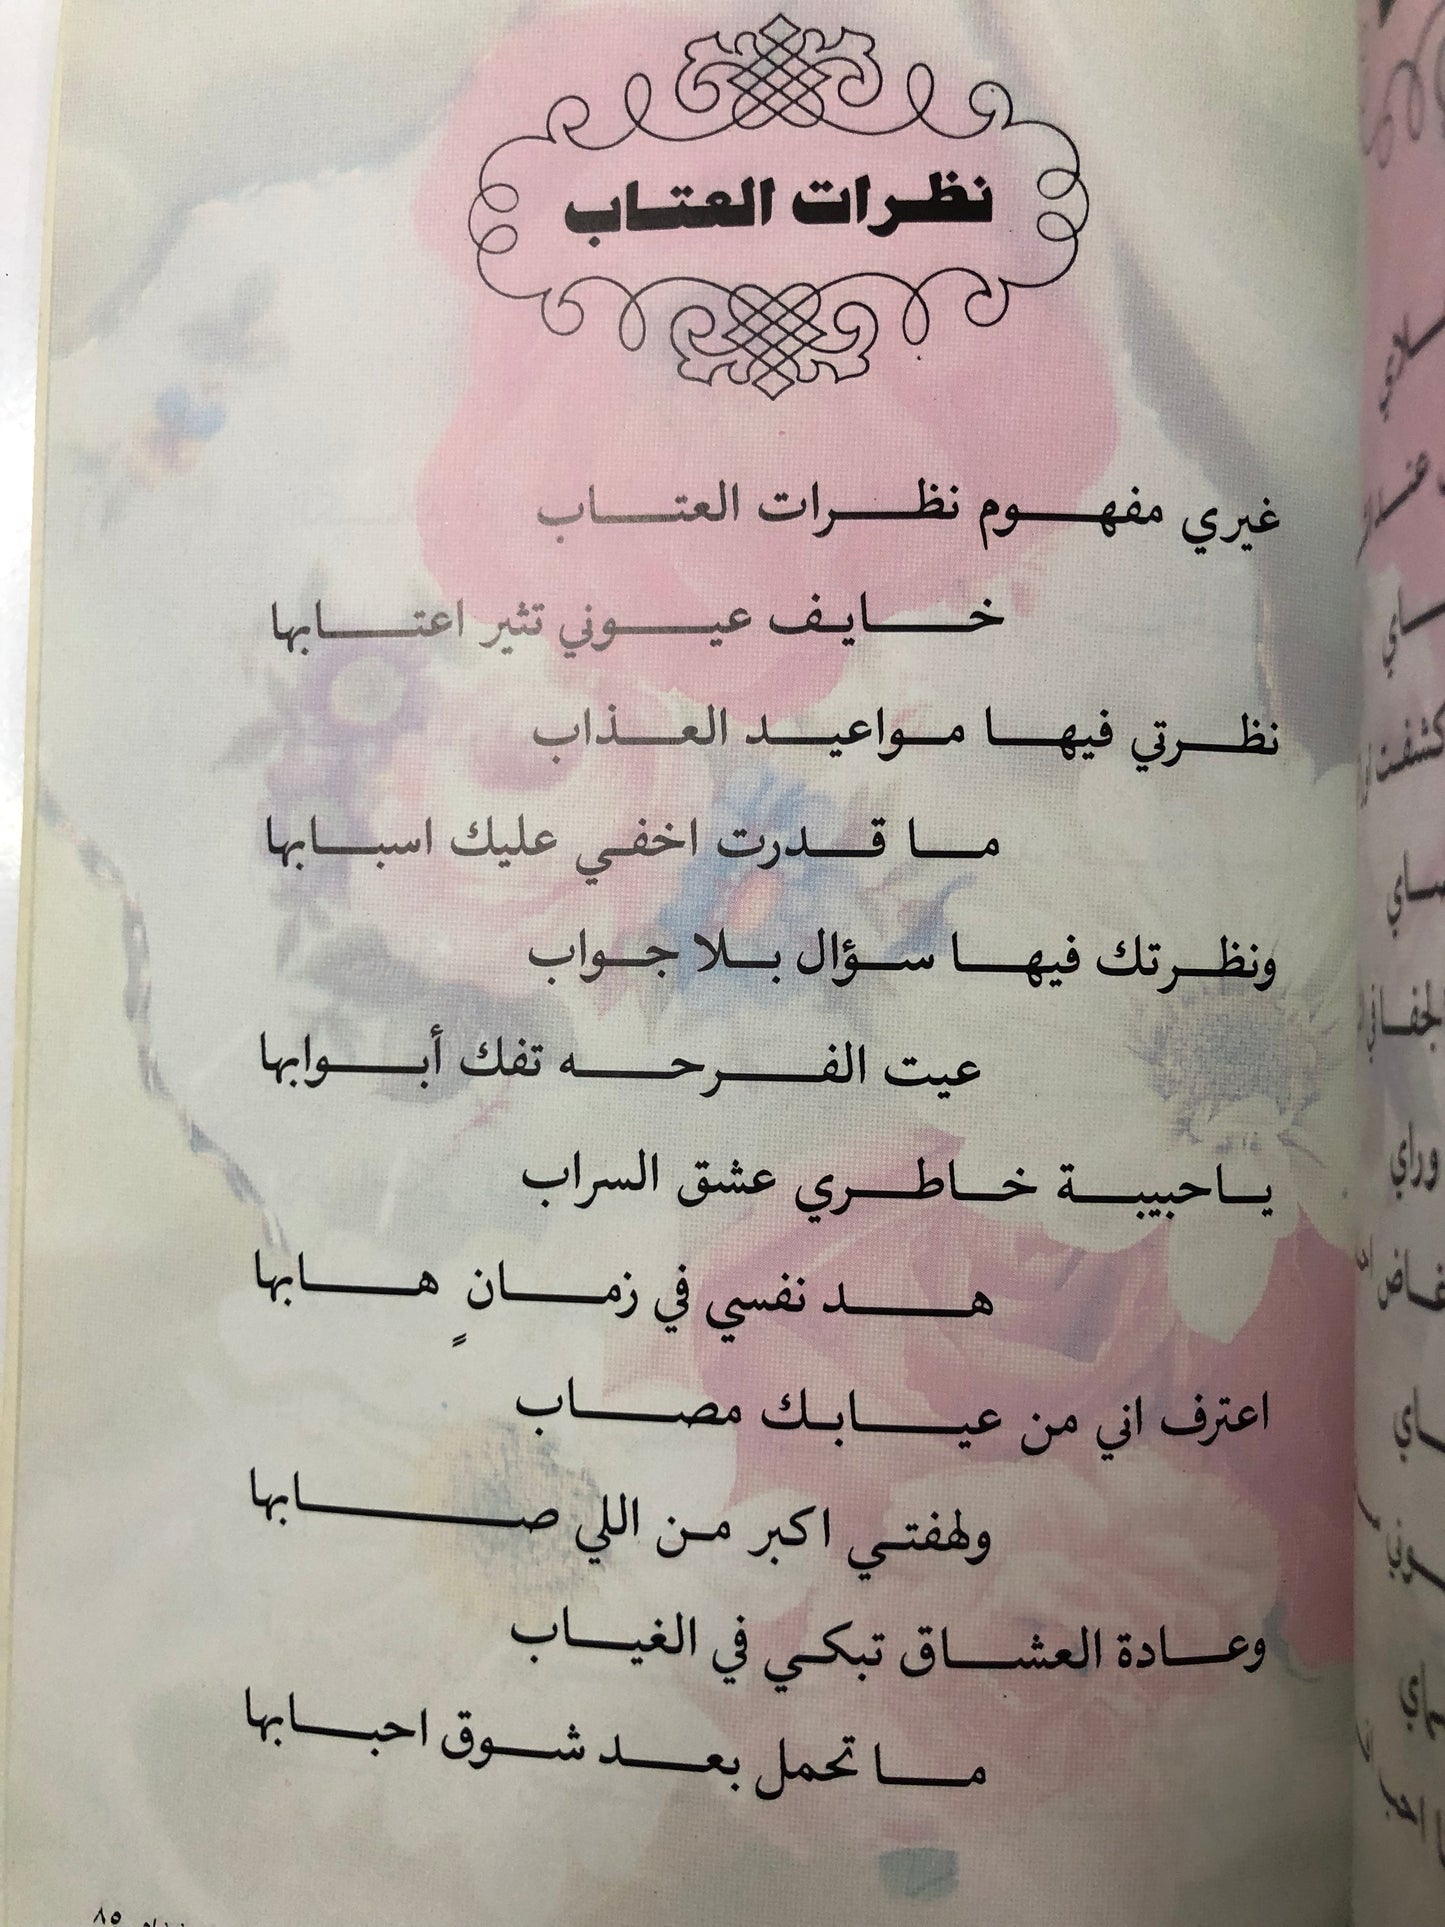 نظرات العتاب
غيري مفهوم نظرات العتاب
خايف عيوني تثير اعتابها
نظرتي فيها مواعيد العذاب
ما قدرت اخفي عليك اسبابها
ونظرتك فيها سؤال بلا جواب
عيت الفرحه تفك أبوابها
ياحبيبة خاطري عشق السراب
هد نفسي في زمانٍ هابها
اعترف اني من عيابك مصاب
ولهفتي اكبر من اللي صابها
وعادة العشاق تبكي في الغياب
ما تحمل بعد شوق احبابها
٨٥